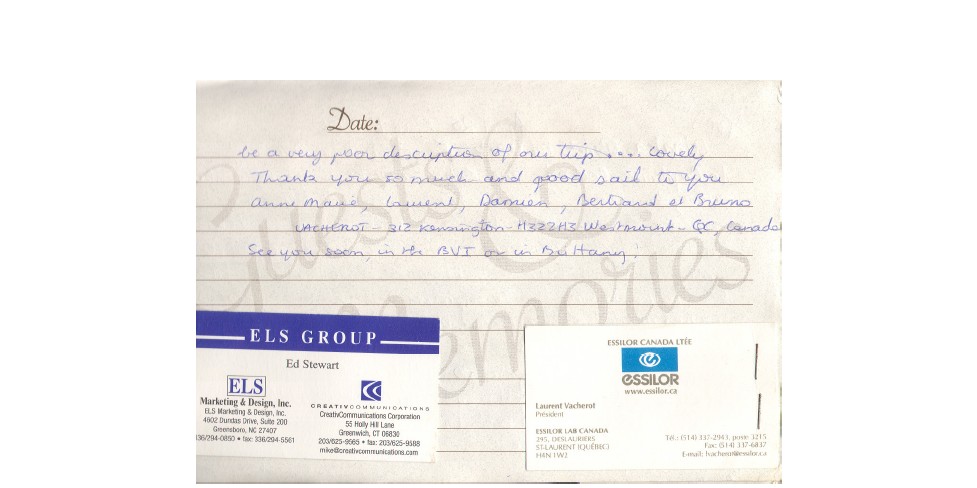 Date:
be a very poor description of our trip .... Lovely
Thank you so much and good sail to you
Anne Marie, Laurent, Damien, Bertrand et Bruno
VACHEROT - 312 Kensington - H3Z2H3 Westmount - QC, Canada
See you soon, in the BVI or in Brittany!
Guests &
Memories
ELS GROUP
Ed Stewart
ELS
Marketing & Design, Inc.
ELS Marketing & Design, Inc.
4602 Dundas Drive, Suite 200
Greensboro, NC 27407
336/294-0850 • fax: 336/294-5561
CREATIVCOMMUNICATIONS
CreativCommunications Corporation
55 Holly Hill Lane
Greenwich, CT 06830
203/625-9565 • fax: 203/625-9588
mike@creativcommunications.com
ESSILOR CANADA LTÉE
essilor
www.essilor.ca
Laurent Vacherot
Président
ESSILOR LAB CANADA
295, DESLAURIERS
ST-LAURENT (QUÉBEC)
H4N 1W2
Tél.: (514) 337-2943, poste 3215
Fax: (514) 337-6837
E-mail: lvacherot@essilor.ca